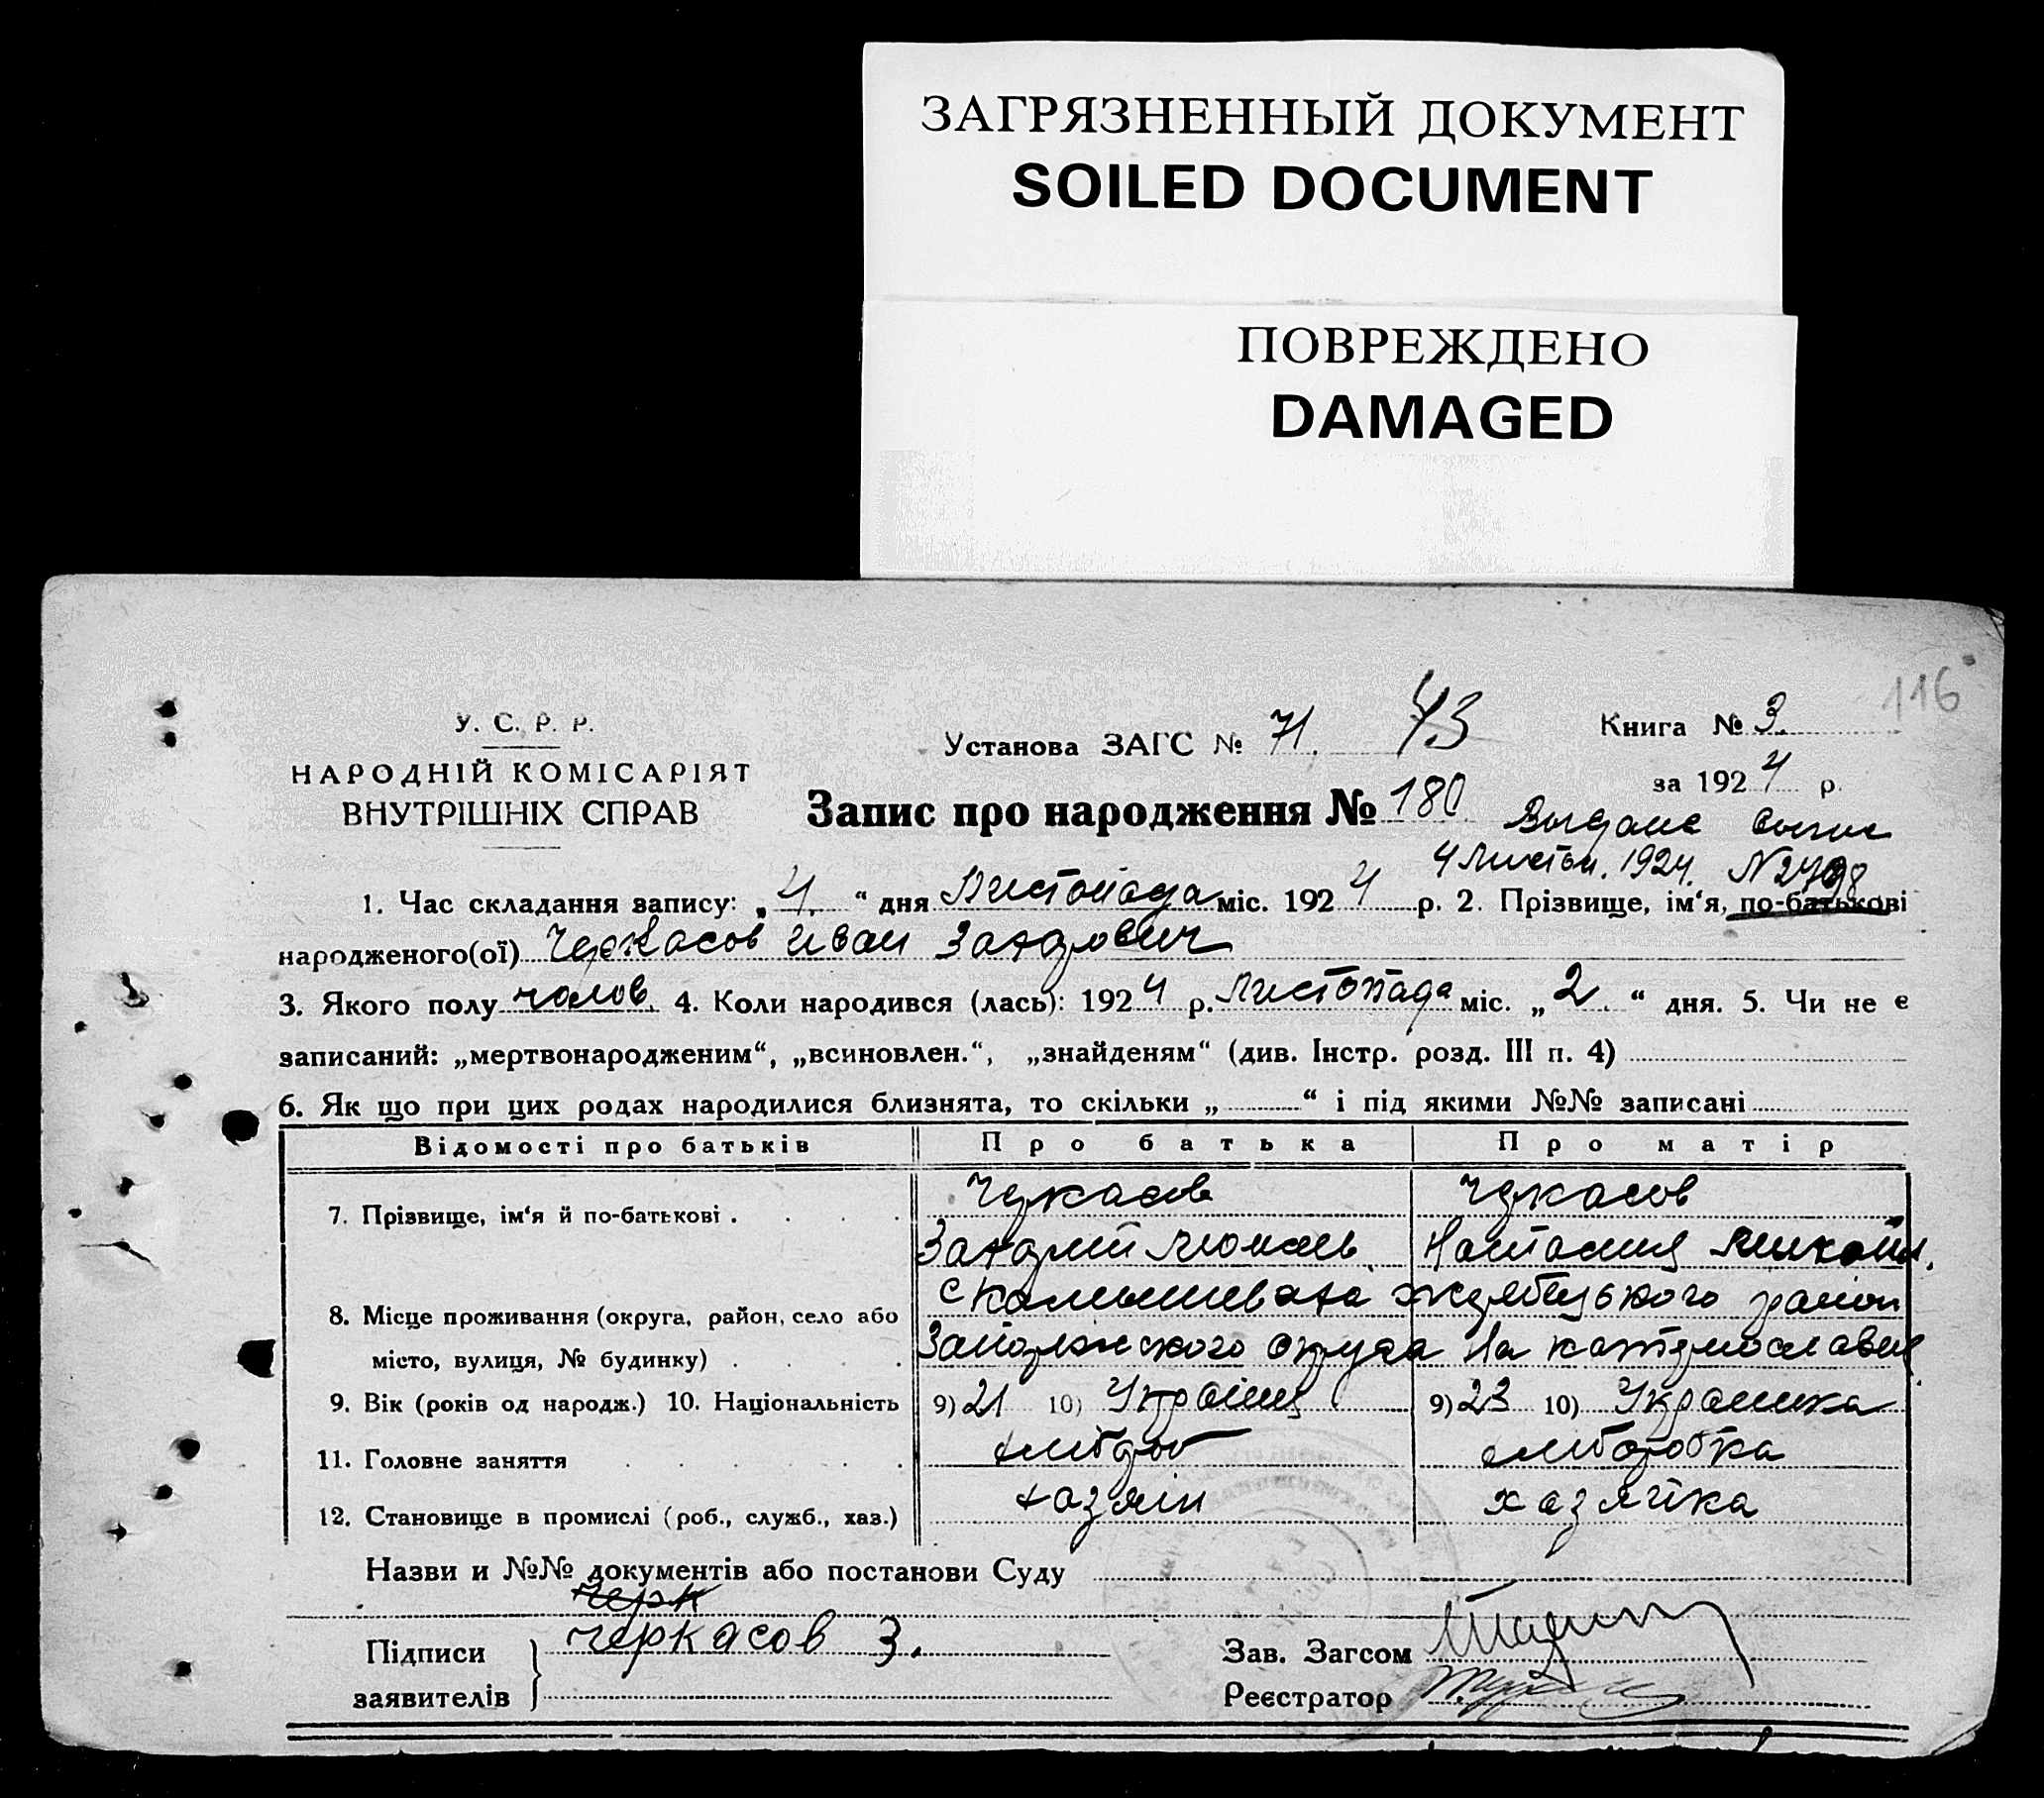 ЗАГРЯЗНЕННЫЙ ДОКУМЕНТ
SOILED DOCUMENT
ПОВРЕЖДЕНО
DAMAGED
116
У. С. Р. Р.
НАРОДНІЙ КОМІСАРІЯТ
ВНУТРІШНІХ СПРАВ
Установа ЗАГС № 71. 43
Книга № 3.
за 1924 р.
Запис про народження № 180
4 Листоп. 1924. N 2798
1. Час складання запису: „4.“ дня Листопада міс. 1924 р. 2. Прізвище, ім‘я, по-батькові
народженого(ої) Черкасов Иван Захарович
3. Якого полу чолов. 4. Коли народився (лась): 1924 р. Листопада міс. „2.“ дня. 5. Чи не є
записаний: „мертвонародженим“, „всиновлен.“, „знайденям“ (див. Інстр. розд. III п. 4)
6. Як що при цих родах народилися близнята, то скільки „ “ і під якими №№ записані
Відомості про батьків Про батька Про матір
7. Прізвище, ім‘я й по-батькові . Черкасов Черкасов
Захарий Настасия Микол.
8. Місце проживання (округа, район, село або
місто, вулиця, № будинку) . с Камышеваха Жеребецького район
Запорожского округа На Катеринославщ
9. Вік (років од народж.) 10. Національність 9) 21 10) Українец 9) 23 10) Украинка
11. Головне заняття хлібороб хлиборобка
12. Становище в промислі (роб., служб., хаз.) хазяін хазяйка
Назви и №№ документів або постанови Суду
черк
Підписи
заявителів черкасов З.
Зав. Загсом
Реєстратор